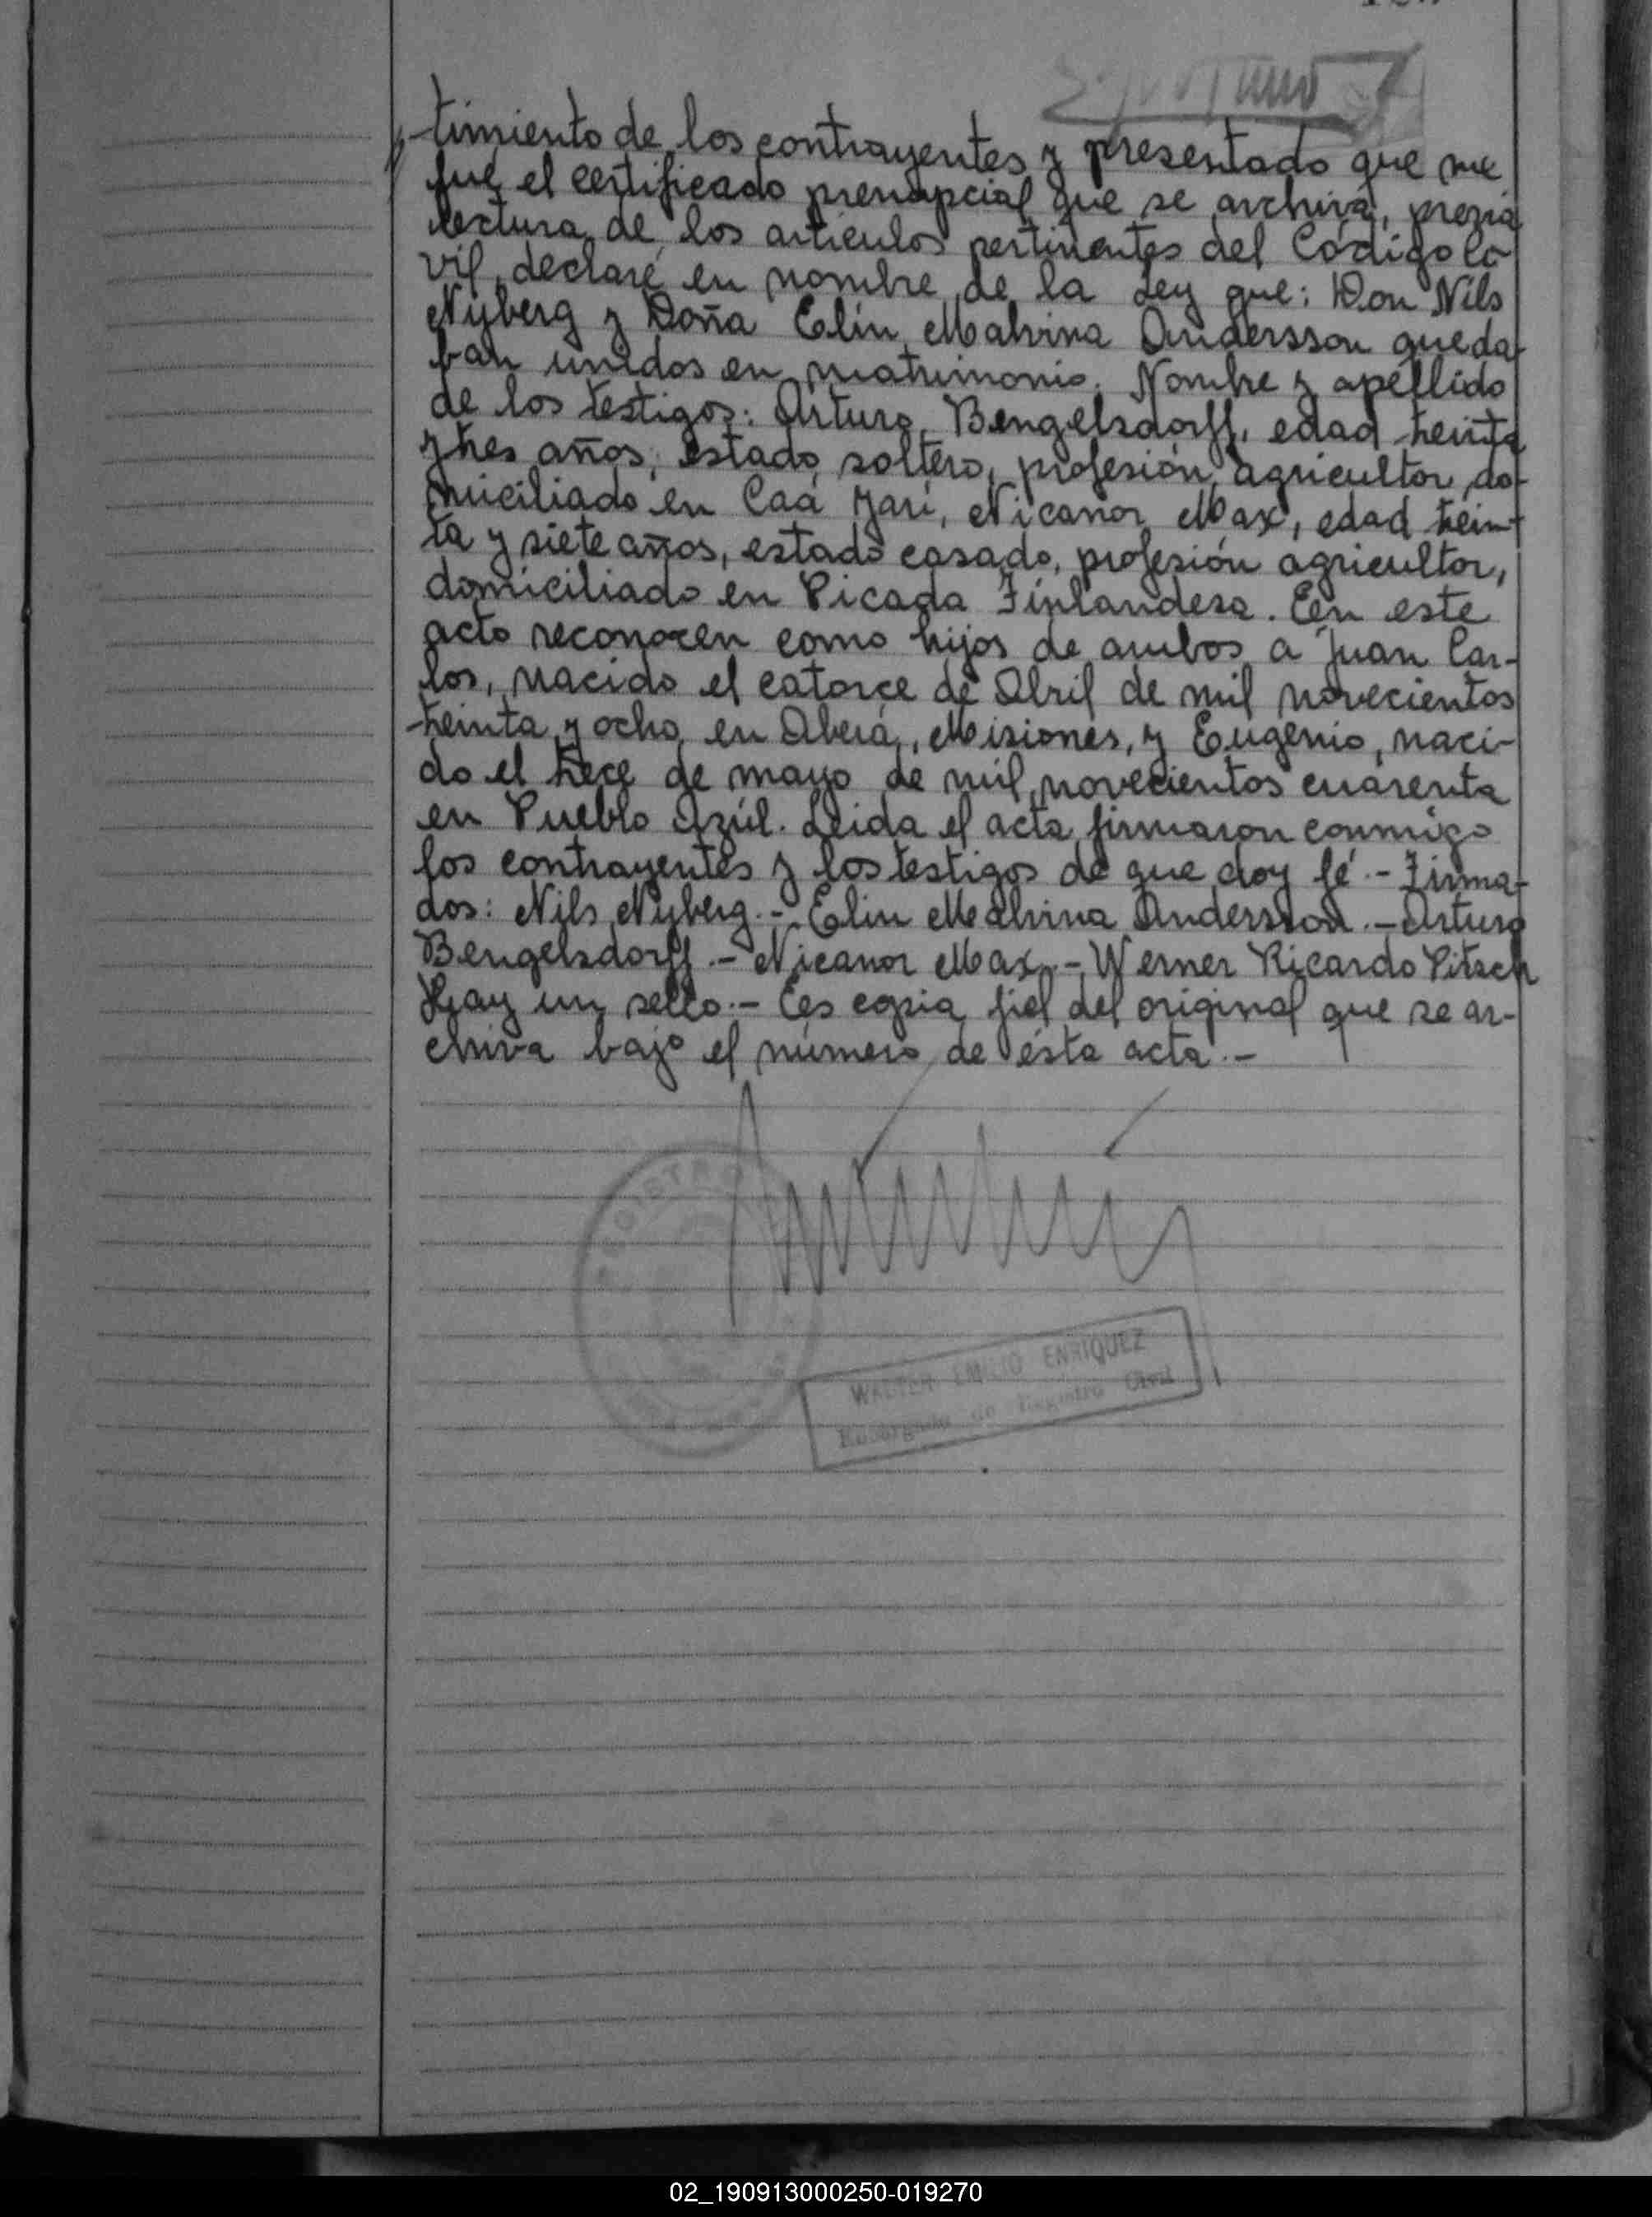 timiento de los contrayentes y presentado que me
fue el certificado prenupcial que se archiva, previa
lectura de los artículos pertinentes del Código Ci-
vil, declaré en nombre de la Ley que: Don Nils
Nyberg y Doña Elin Malvina Andersson queda-
ban unidos en matrimonio. Nombre y apellido
de los testigos: Arturo Bengelsdorff, edad treinta
y tres años, estado soltero, profesión agricultor, do-
miciliado en Caá Yarí, Nicanor Max, edad trein-
ta y siete años, estado casado, profesión agricultor,
domiciliado en Picada Finlandesa. En este
acto reconocen como hijos de ambos a Juan Car-
los, nacido el catorce de Abril de mil novecientos
treinta y ocho, en Oberá, Misiones, y Eugenio, naci-
do el trece de mayo de mil novecientos cuarenta
en Pueblo Azúl. Leida el acta firmaron conmigo
los contrayentes y los testigos de que doy fé.- Firma-
dos: Nils Nyberg.- Elin Malvina Andersson.- Arturo
Bengelsdorff.- Nicanor Max.- Werner Ricardo Pitsch
Hay un sello.- Es copia fiel del original que se ar-
chiva bajo el número de ésta acta.-
REGISTRO
WALTER EMILIO ENRIQUEZ
Encargado de Registro Civil
02_190913000250-019270